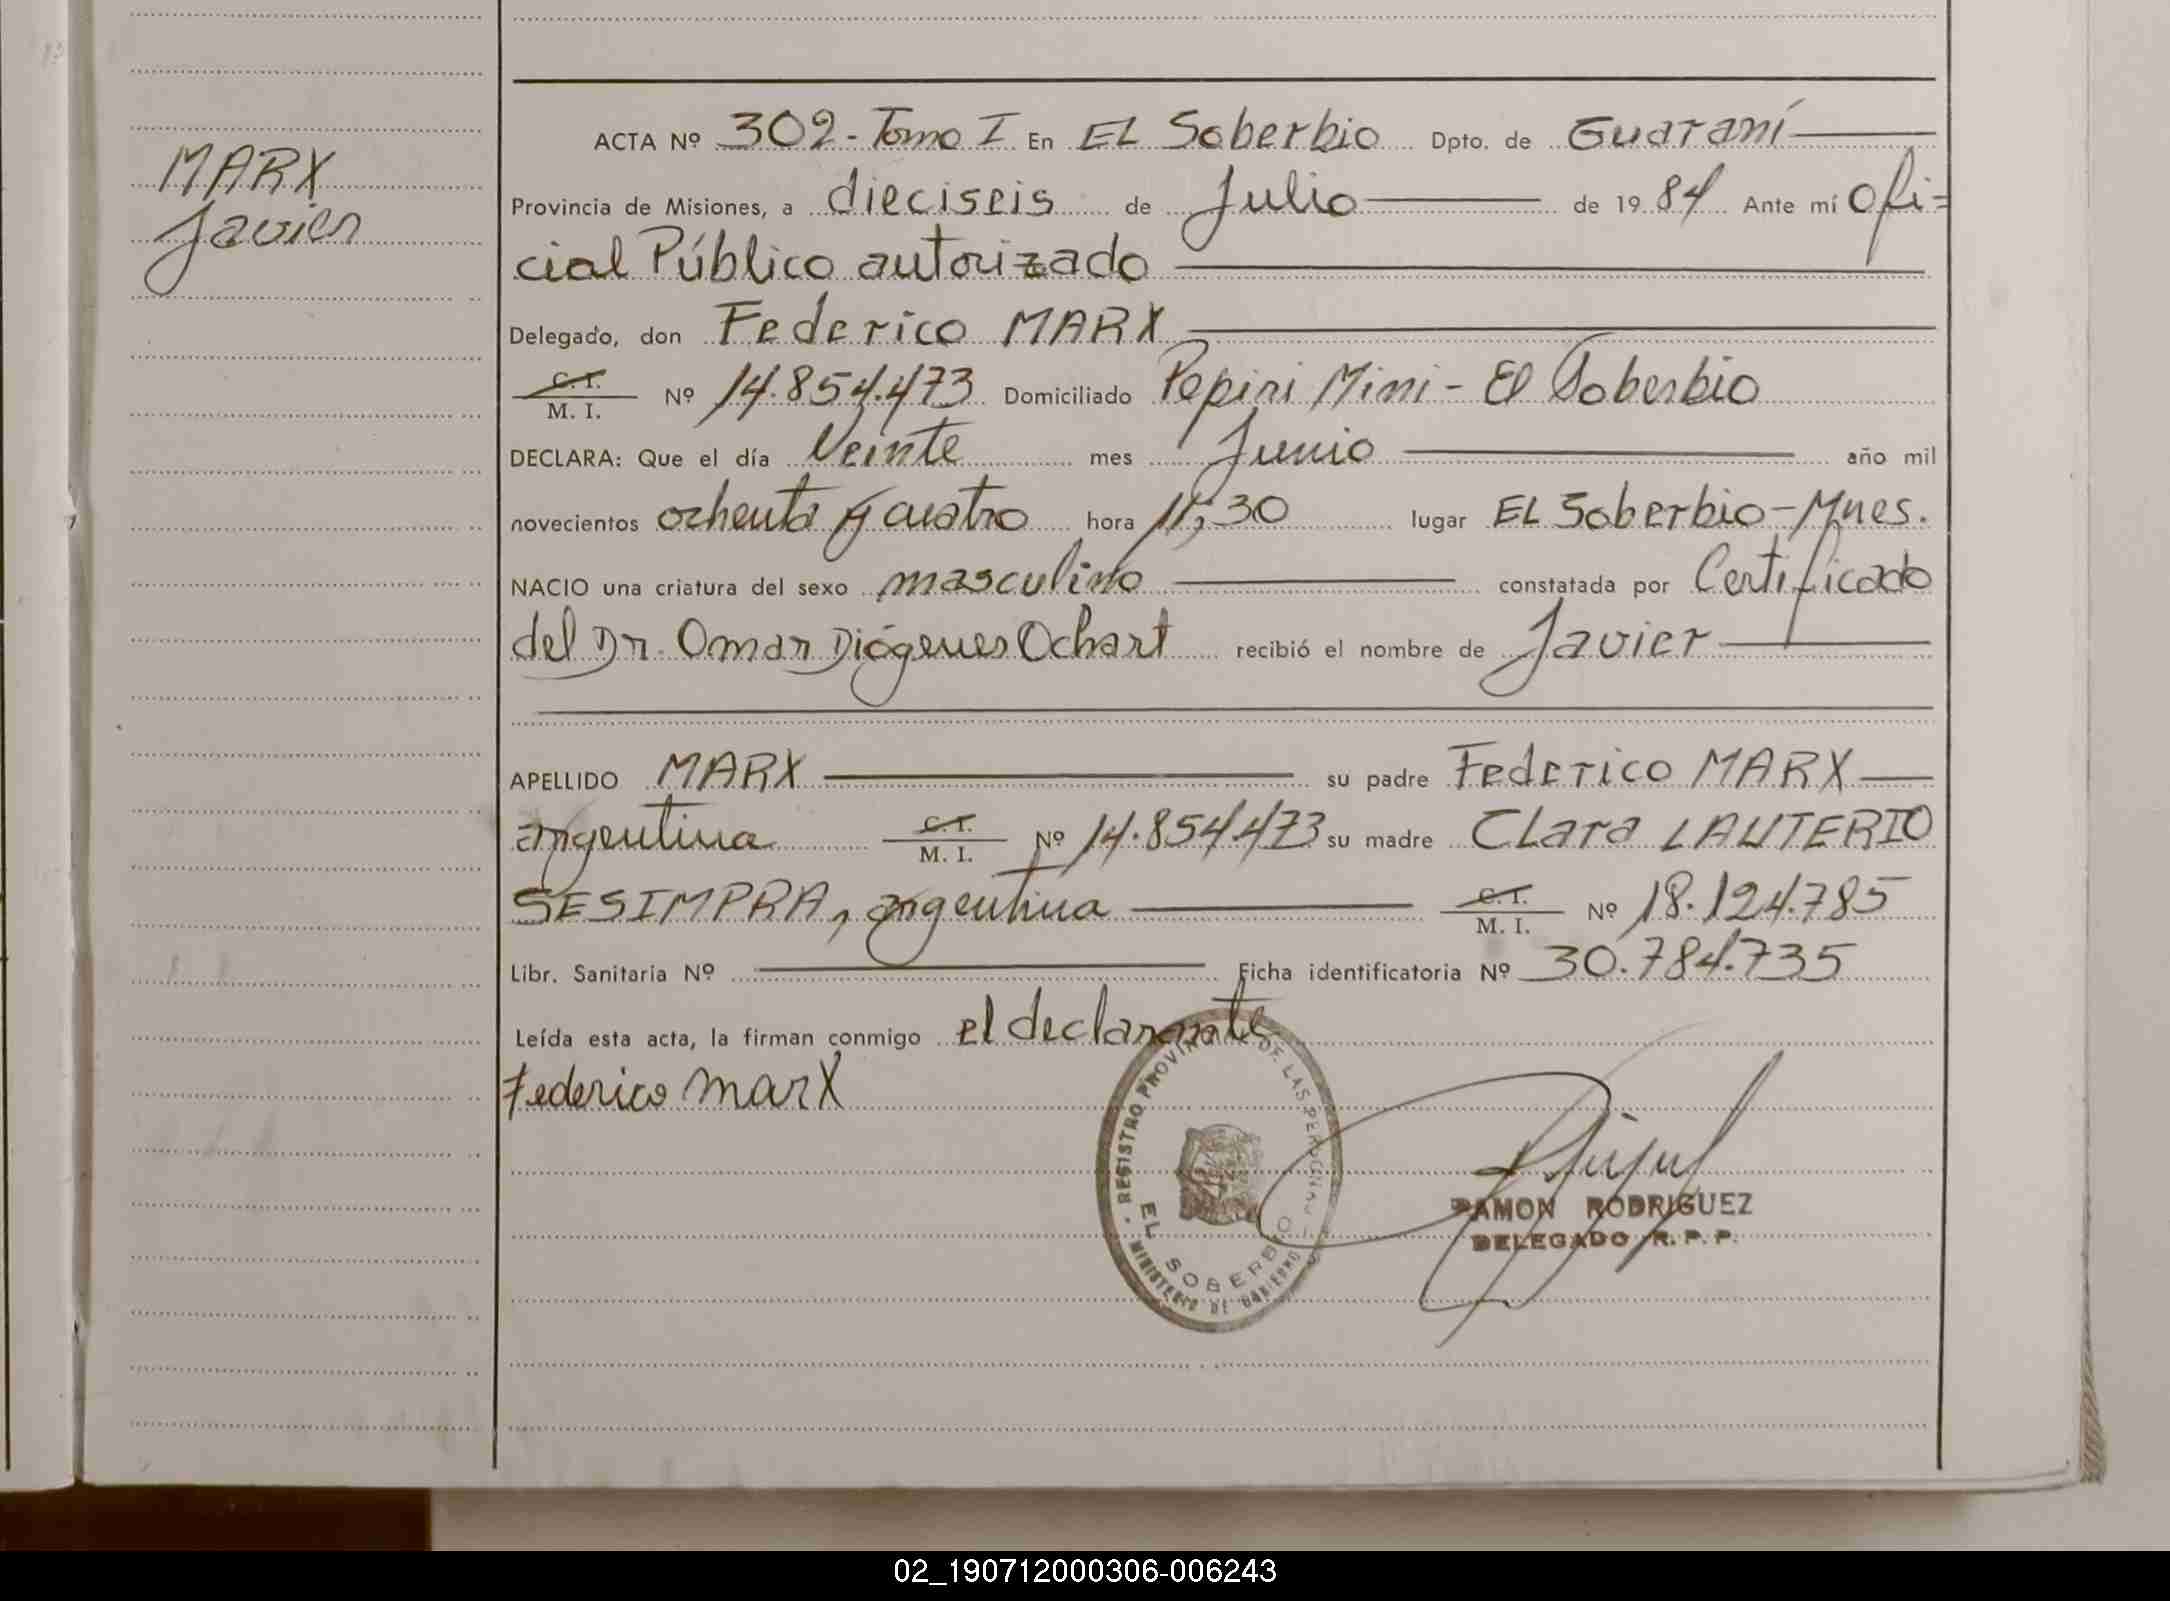 MARX
Javier
ACTA Nº 302 - Tomo I En EL Soberbio Dpto. de Guaraní
Provincia de Misiones, a dieciseis de Julio de 1984 Ante mí ofi=
cial Público autorizado
Delegado, don Federico MARX
C. I.
M. I. Nº 14.854.473 Domiciliado Pepiri Mini - El Soberbio
DECLARA: Que el día Veinte mes Junio año mil
novecientos ochenta y cuatro hora 11,30 lugar EL Soberbio - Mnes.
NACIO una criatura del sexo masculino constatada por Certificado
del Dr. Omar Diógenes Ochart recibió el nombre de Javier
APELLIDO MARX su padre Federico MARX
argentina C. I. M. I. Nº 14.854.473 su madre CLara LAUTERIO
SESIMPRA, argentina C. I. M. I. Nº 18.124.785
Libr. Sanitaria Nº Ficha identificatoria Nº 30.784.735
Leída esta acta, la firman conmigo el declarante
Federico Marx
REGISTRO PROVINCIAL DE LAS PERSONAS
EL SOBERBIO
MINISTERIO DE GOBIERNO
RAMON RODRIGUEZ
DELEGADO R. P. P.
02_190712000306-006243